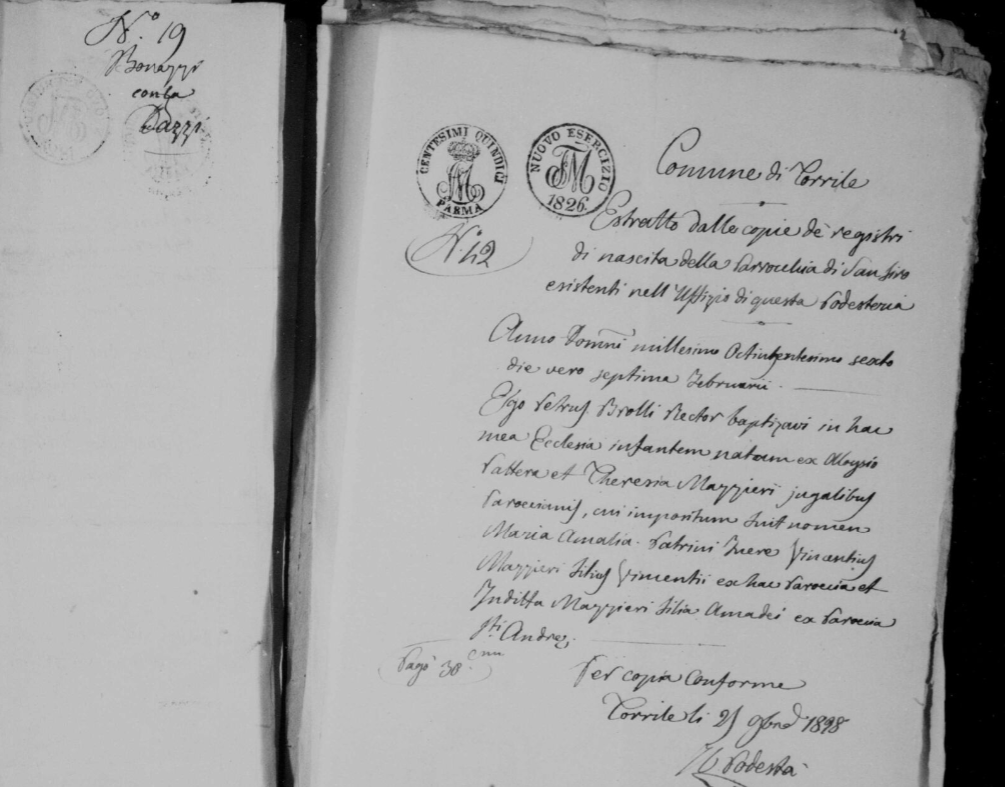 N.° 19
Bonazzi
con la
Pazzi
CENTESIMI QUINDICI
PARMA
NUOVO ESERCIZIO
1826.
Comune di Torrile
N. 42
Estratto dalle copie de registri
di nascita della Parrocchia di San Siro
esistenti nell'Uffizio di questa Podesteria
Anno Domni millesimo Octingentesimo sexto
die vero septima Februarii.
Ego Petrus Brolli Rector baptizavi in hac
mea Ecclesia infantem natam ex Aloysio
Pattera et Theresia Mazzieri jugalibus
Parocianis, cui impositum fuit nomen
Maria Amalia. Patrini fuere Vincentius
Mazzieri filius Vincentii ex hac Parocia et
Juditta Mazzieri filia Amadei ex Parocia
Sti Andreę.
Pagò 30 cmi
Per copia Conforme
Torrile li 25 9bre 1828
Il Podestà